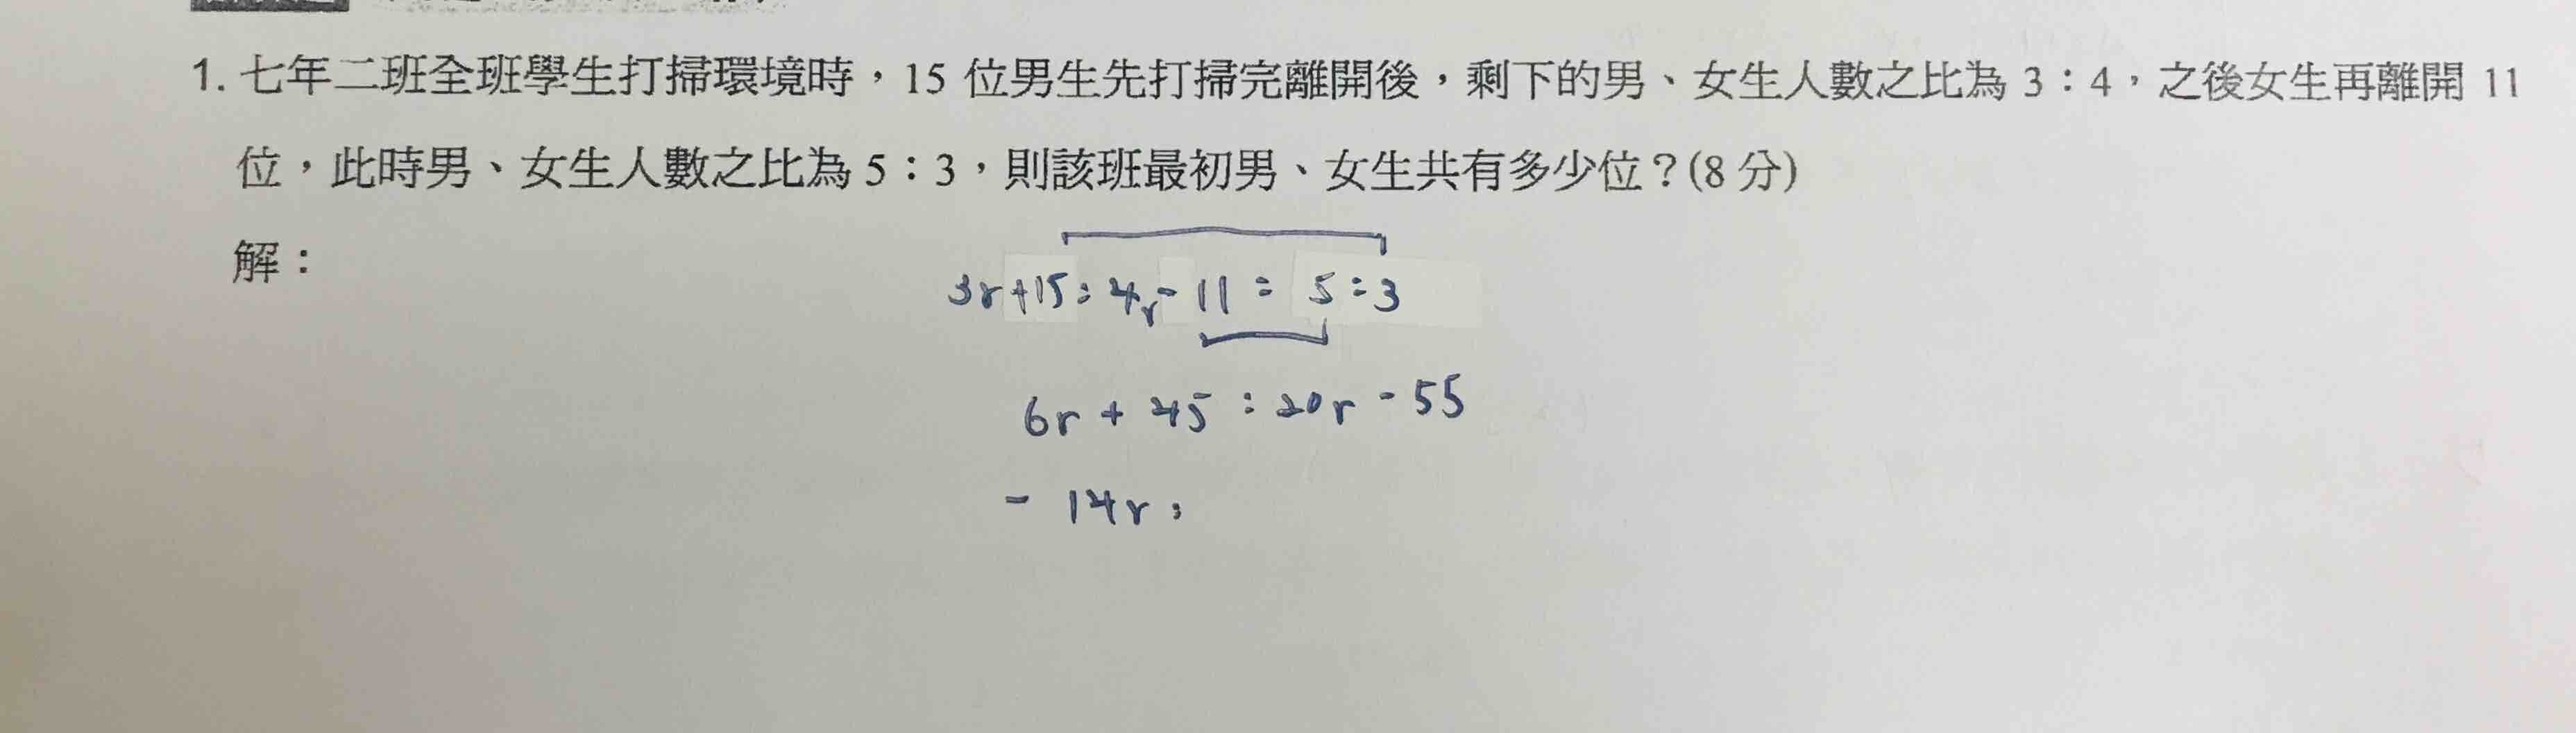 1. 七年二班全班學生打掃環境時，15 位男生先打掃完離開後，剩下的男、女生人數之比為 3：4，之後女生再離開 11
位，此時男、女生人數之比為 5：3，則該班最初男、女生共有多少位？(8 分)
解：
3r+15：4r-11 = 5：3
6r + 45 : 20r - 55
- 14r :